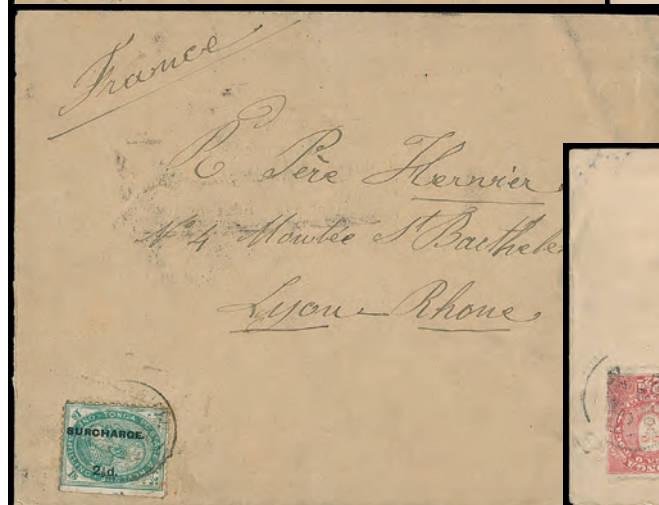 France
R Père Hervier
No 4 Montée St Barthele
Lyon - Rhone
TONGA
SURCHARGE.
2½d.